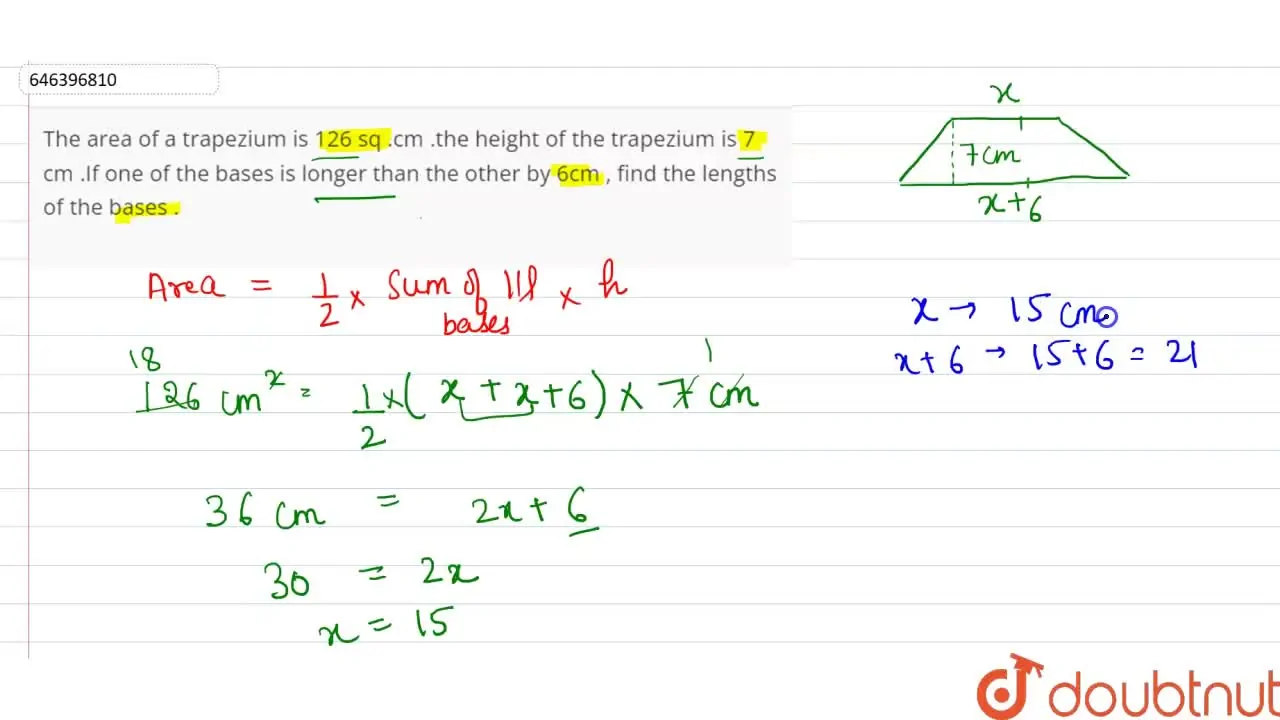 646396810
The area of a trapezium is 126 sq .cm .the height of the trapezium is 7
cm .If one of the bases is longer than the other by 6cm , find the lengths
of the bases .
x
7cm
x+6
Area = 1/2 × Sum of ||l bases × h
18 1
126 cm² = 1/2 × ( x + x + 6) × 7 cm
36 cm = 2x + 6
30 = 2x
x = 15
x → 15 cm
x + 6 → 15 + 6 = 21
doubtnut